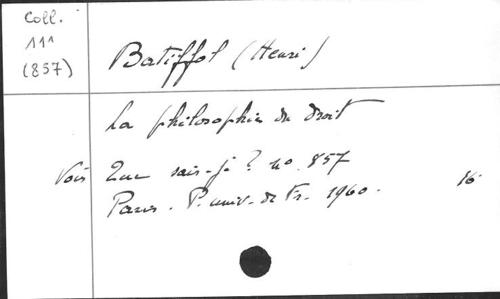 Coll.
111
(857)
Batiffol (Henri)
La philosophie du droit
Vois Que sais-je? no. 857
Paris. P. univ. de Fr. 1960. 16